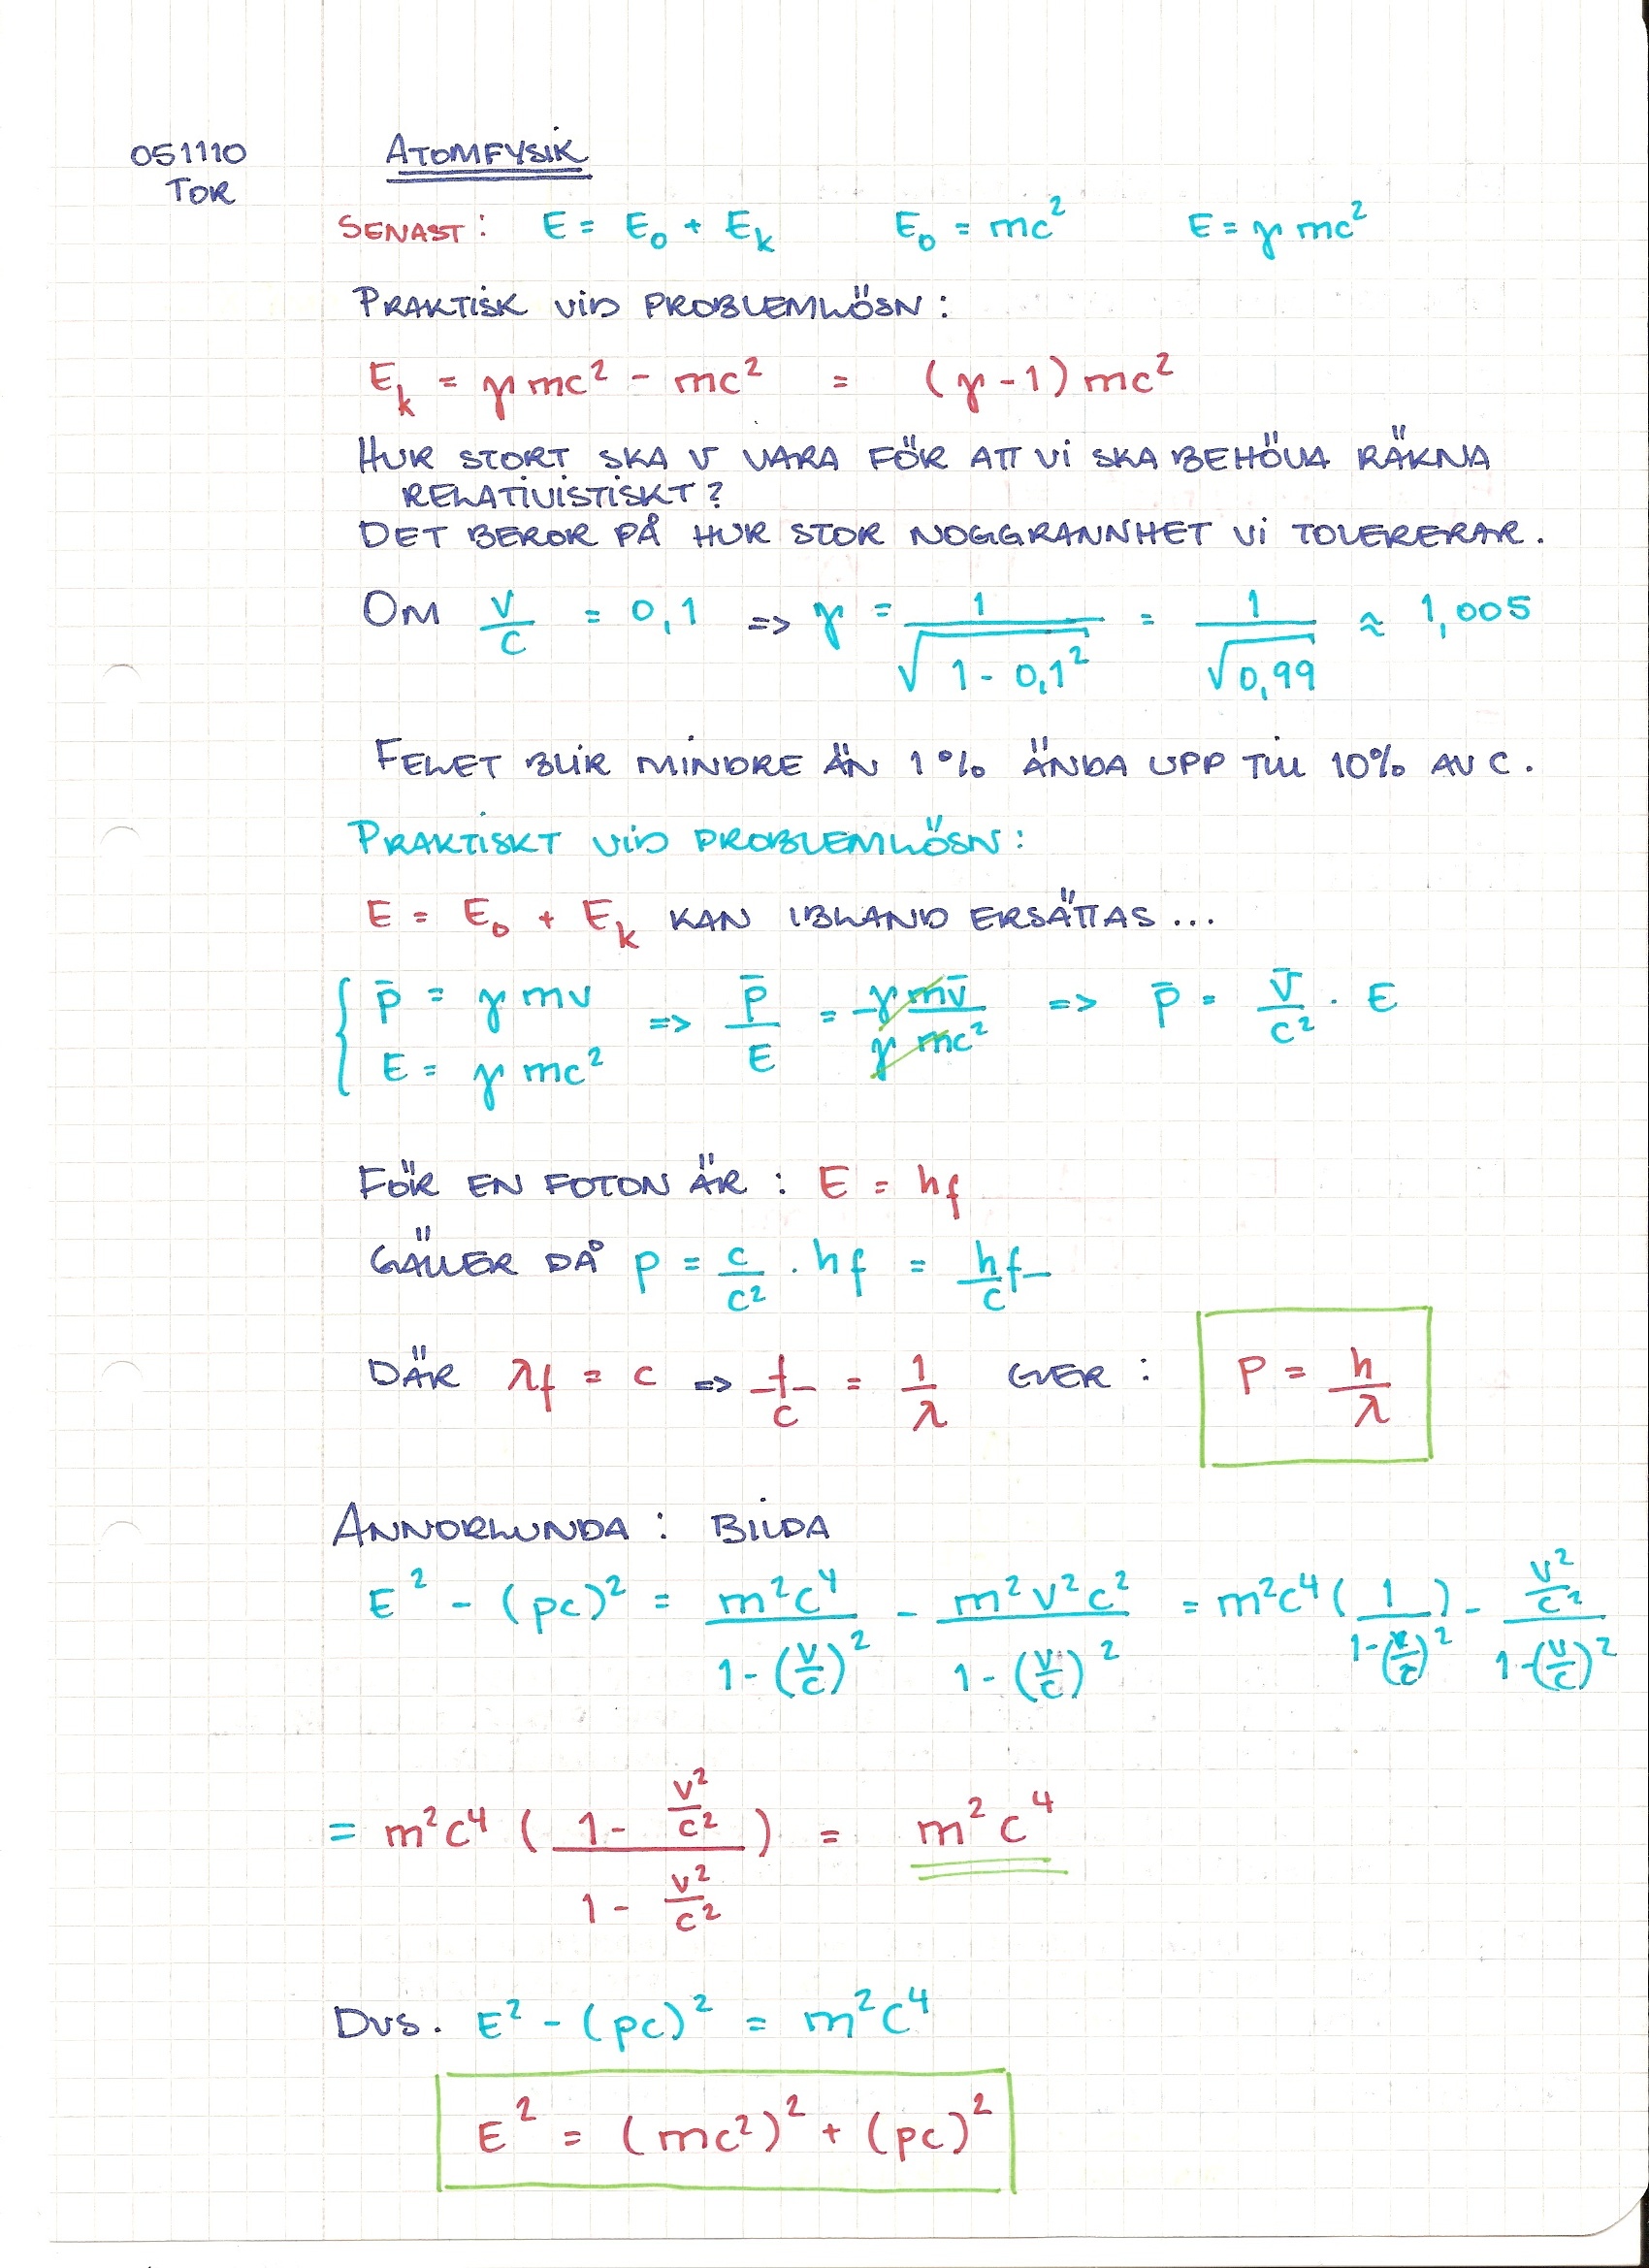 051110 ATOMFYSIK
TOR
SENAST: E = E₀ + Eₖ E₀ = mc² E = γmc²
PRAKTISK VID PROBLEMLÖSN:
Eₖ = γmc² - mc² = (γ-1)mc²
HUR STORT SKA V VARA FÖR ATT VI SKA BEHÖVA RÄKNA
RELATIVISTISKT?
DET BEROR PÅ HUR STOR NOGGRANNHET VI TOLERERAR.
OM v/c = 0,1 => γ = 1/√(1-0,1²) = 1/√0,99 ≈ 1,005
FELET BLIR MINDRE ÄN 1% ÄNDA UPP TILL 10% AV C.
PRAKTISKT VID PROBLEMLÖSN:
E = E₀ + Eₖ KAN IBLAND ERSÄTTAS...
{ p̄ = γmv => p̄/E = γmv̄/γmc² => p̄ = v̄/c² · E
E = γmc²
FÖR EN FOTON ÄR: E = hf
GÄLLER DÅ p = c/c² · hf = hf/c
DÄR λf = c => f/c = 1/λ GER: P = h/λ
ANNORLUNDA: BILDA
E² - (pc)² = m²c⁴/(1-(v/c)²) - m²v²c²/(1-(v/c)²) = m²c⁴(1/(1-(v/c)²)) - (v²/c²)/(1-(v/c)²)
= m²c⁴((1-v²/c²)/(1-v²/c²)) = m²c⁴
DVS. E² - (pc)² = m²c⁴
E² = (mc²)² + (pc)²